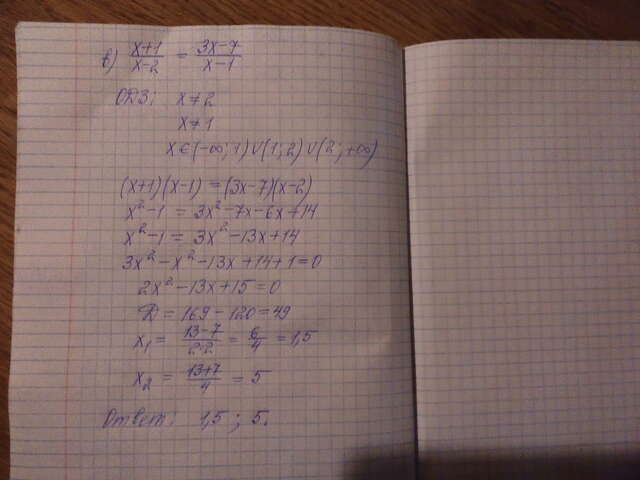 в) x+1/x-2 = 3x-7/x-1
ОДЗ: x≠2
x≠1
x∈(-∞; 1)∪(1; 2)∪(2; +∞)
(x+1)(x-1) = (3x-7)(x-2)
x²-1 = 3x²-7x-6x+14
x²-1 = 3x²-13x+14
3x²-x²-13x+14+1=0
2x²-13x+15=0
D = 169-120=49
x₁ = 13-7/2·2 = 6/4 = 1,5
x₂ = 13+7/4 = 5
Ответ: 1,5; 5.